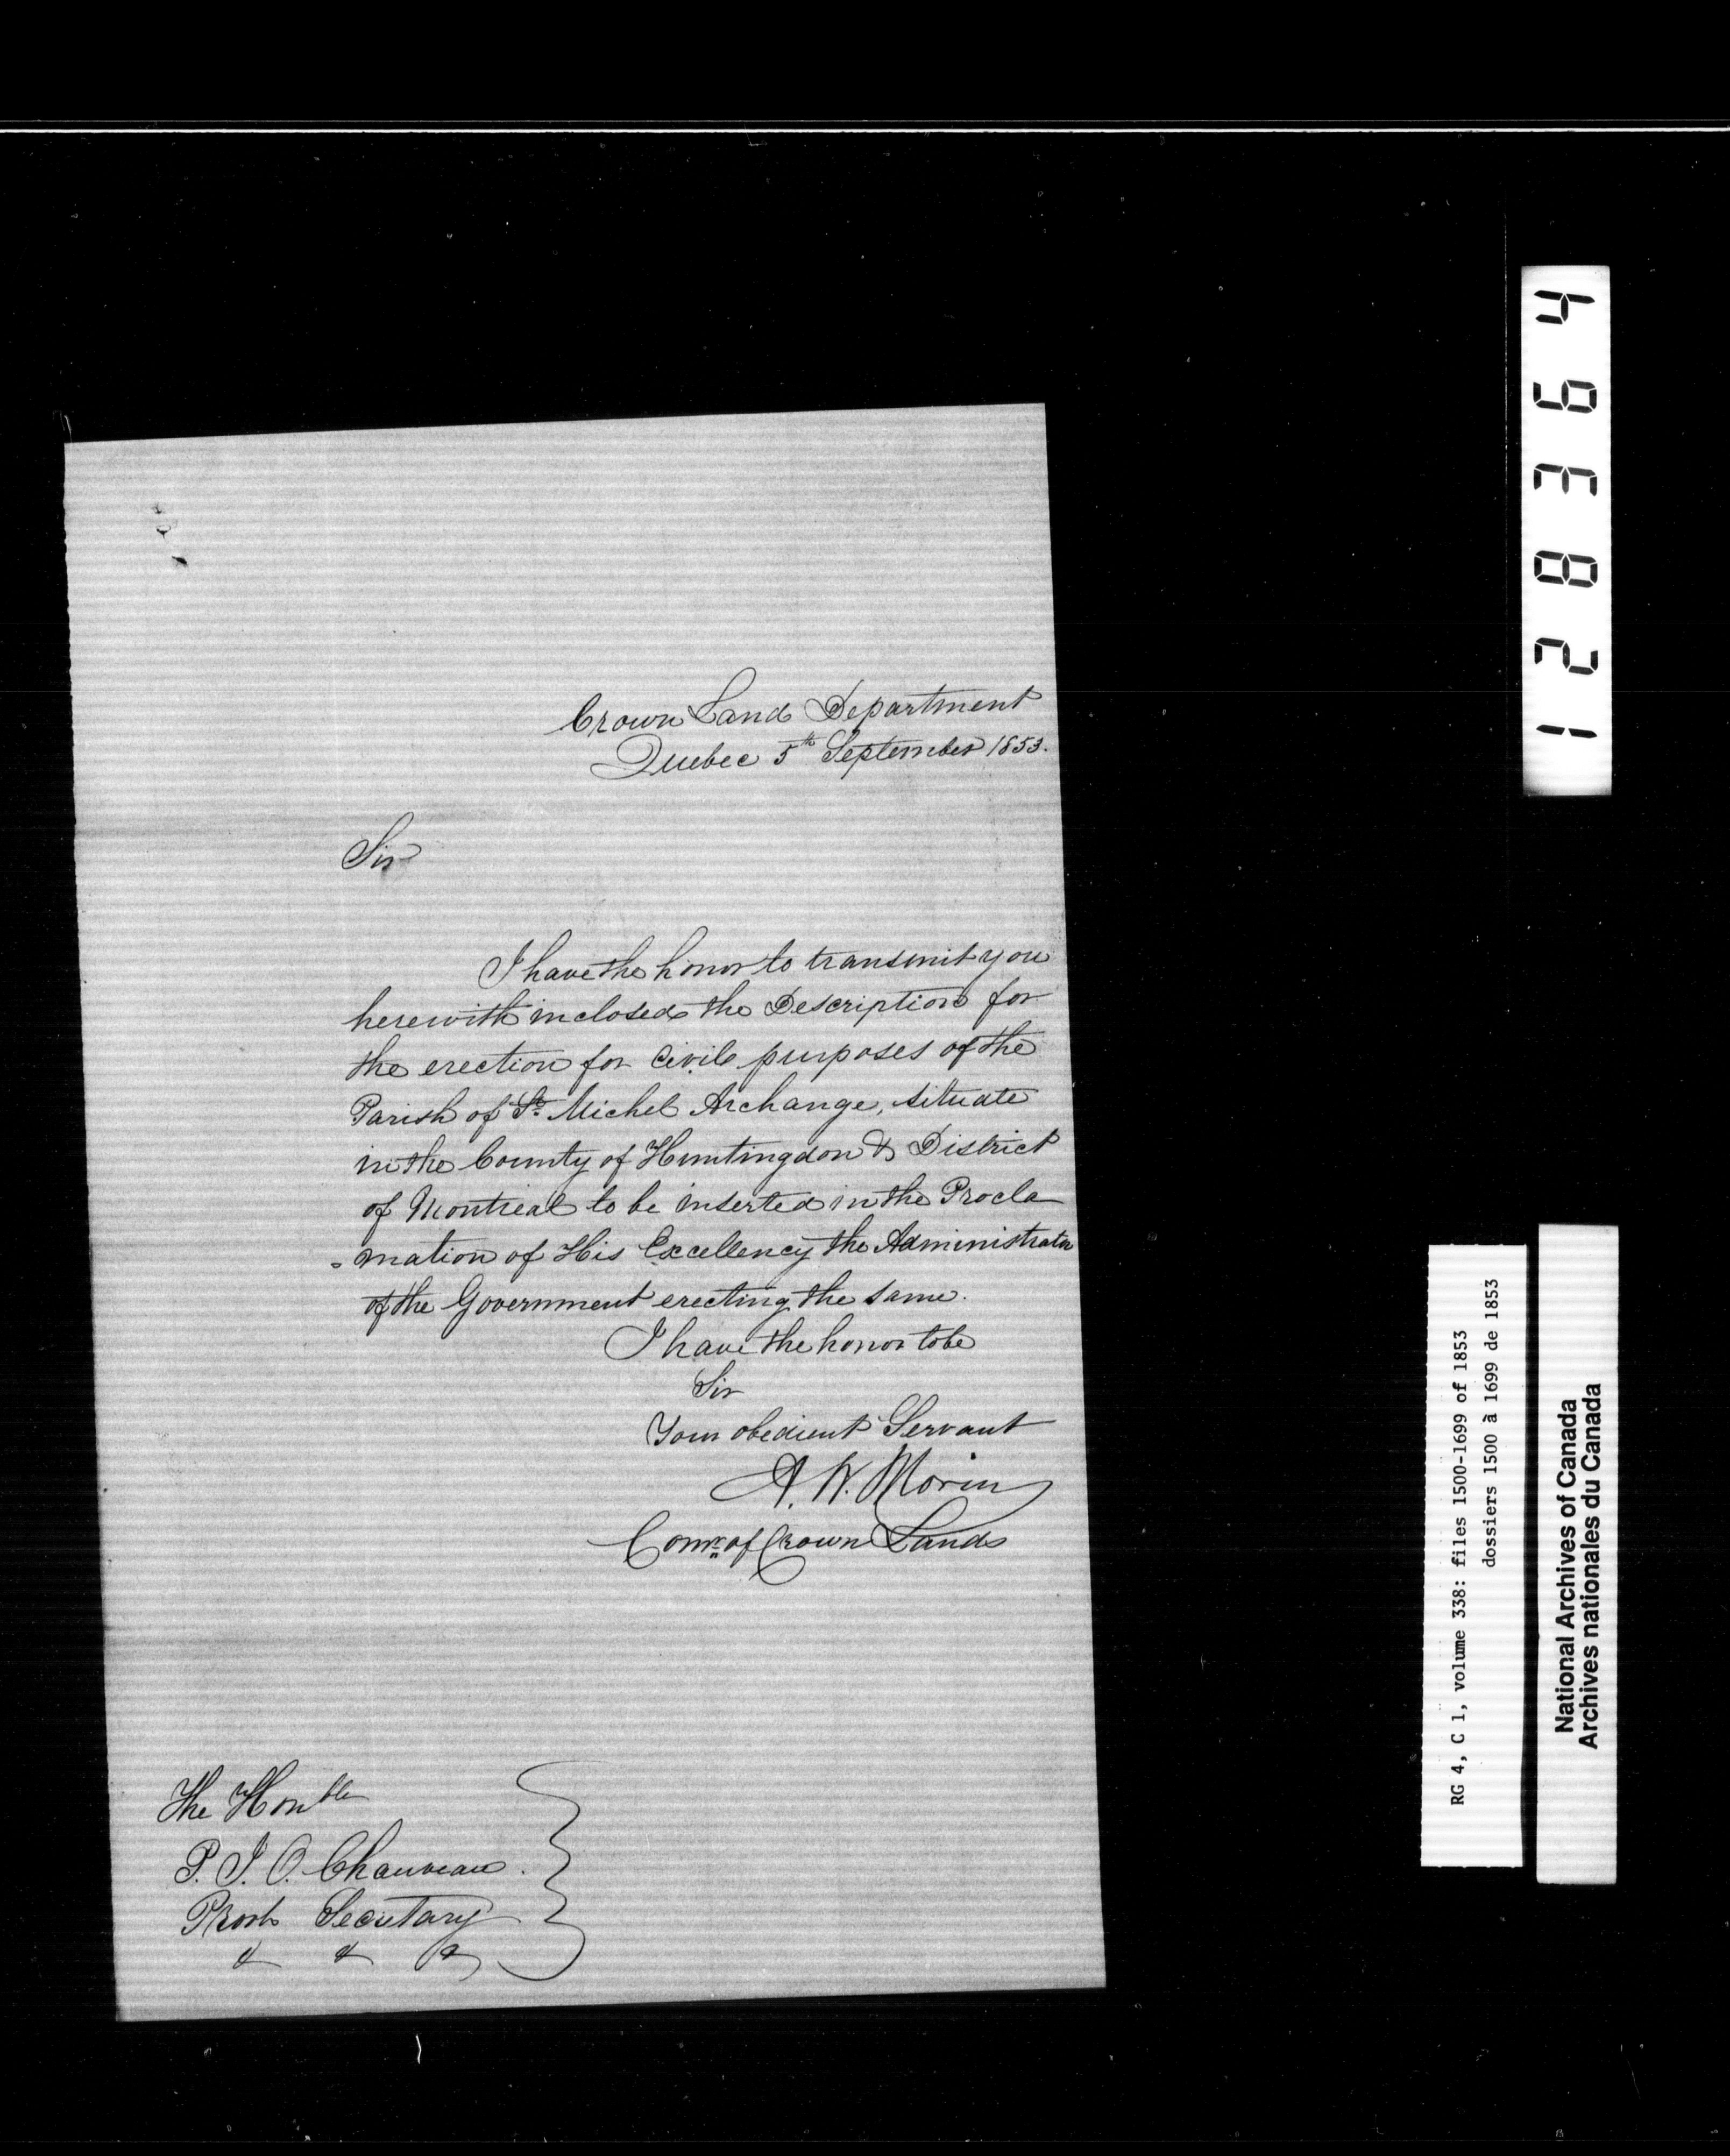 Crown Land Department
Quebec 5th September 1853.
Sir
I have the honor to transmit you
herewith inclosed the Description for
the erection for Civil purposes of the
Parish of St. Michel Archange, situate
in the County of Huntingdon & District
of Montreal to be inserted in the Procla
- mation of His Excellency the Administrator
of the Government erecting the same.
I have the honor to be
Sir
Your obedient Servant
A. N. Morin
Comr. of Crown Lands
The Honble
P. J. O. Chauveau.
Provl Secretary
& & &
128364
RG 4, C 1, volume 338: files 1500-1699 of 1853
dossiers 1500 à 1699 de 1853
National Archives of Canada
Archives nationales du Canada